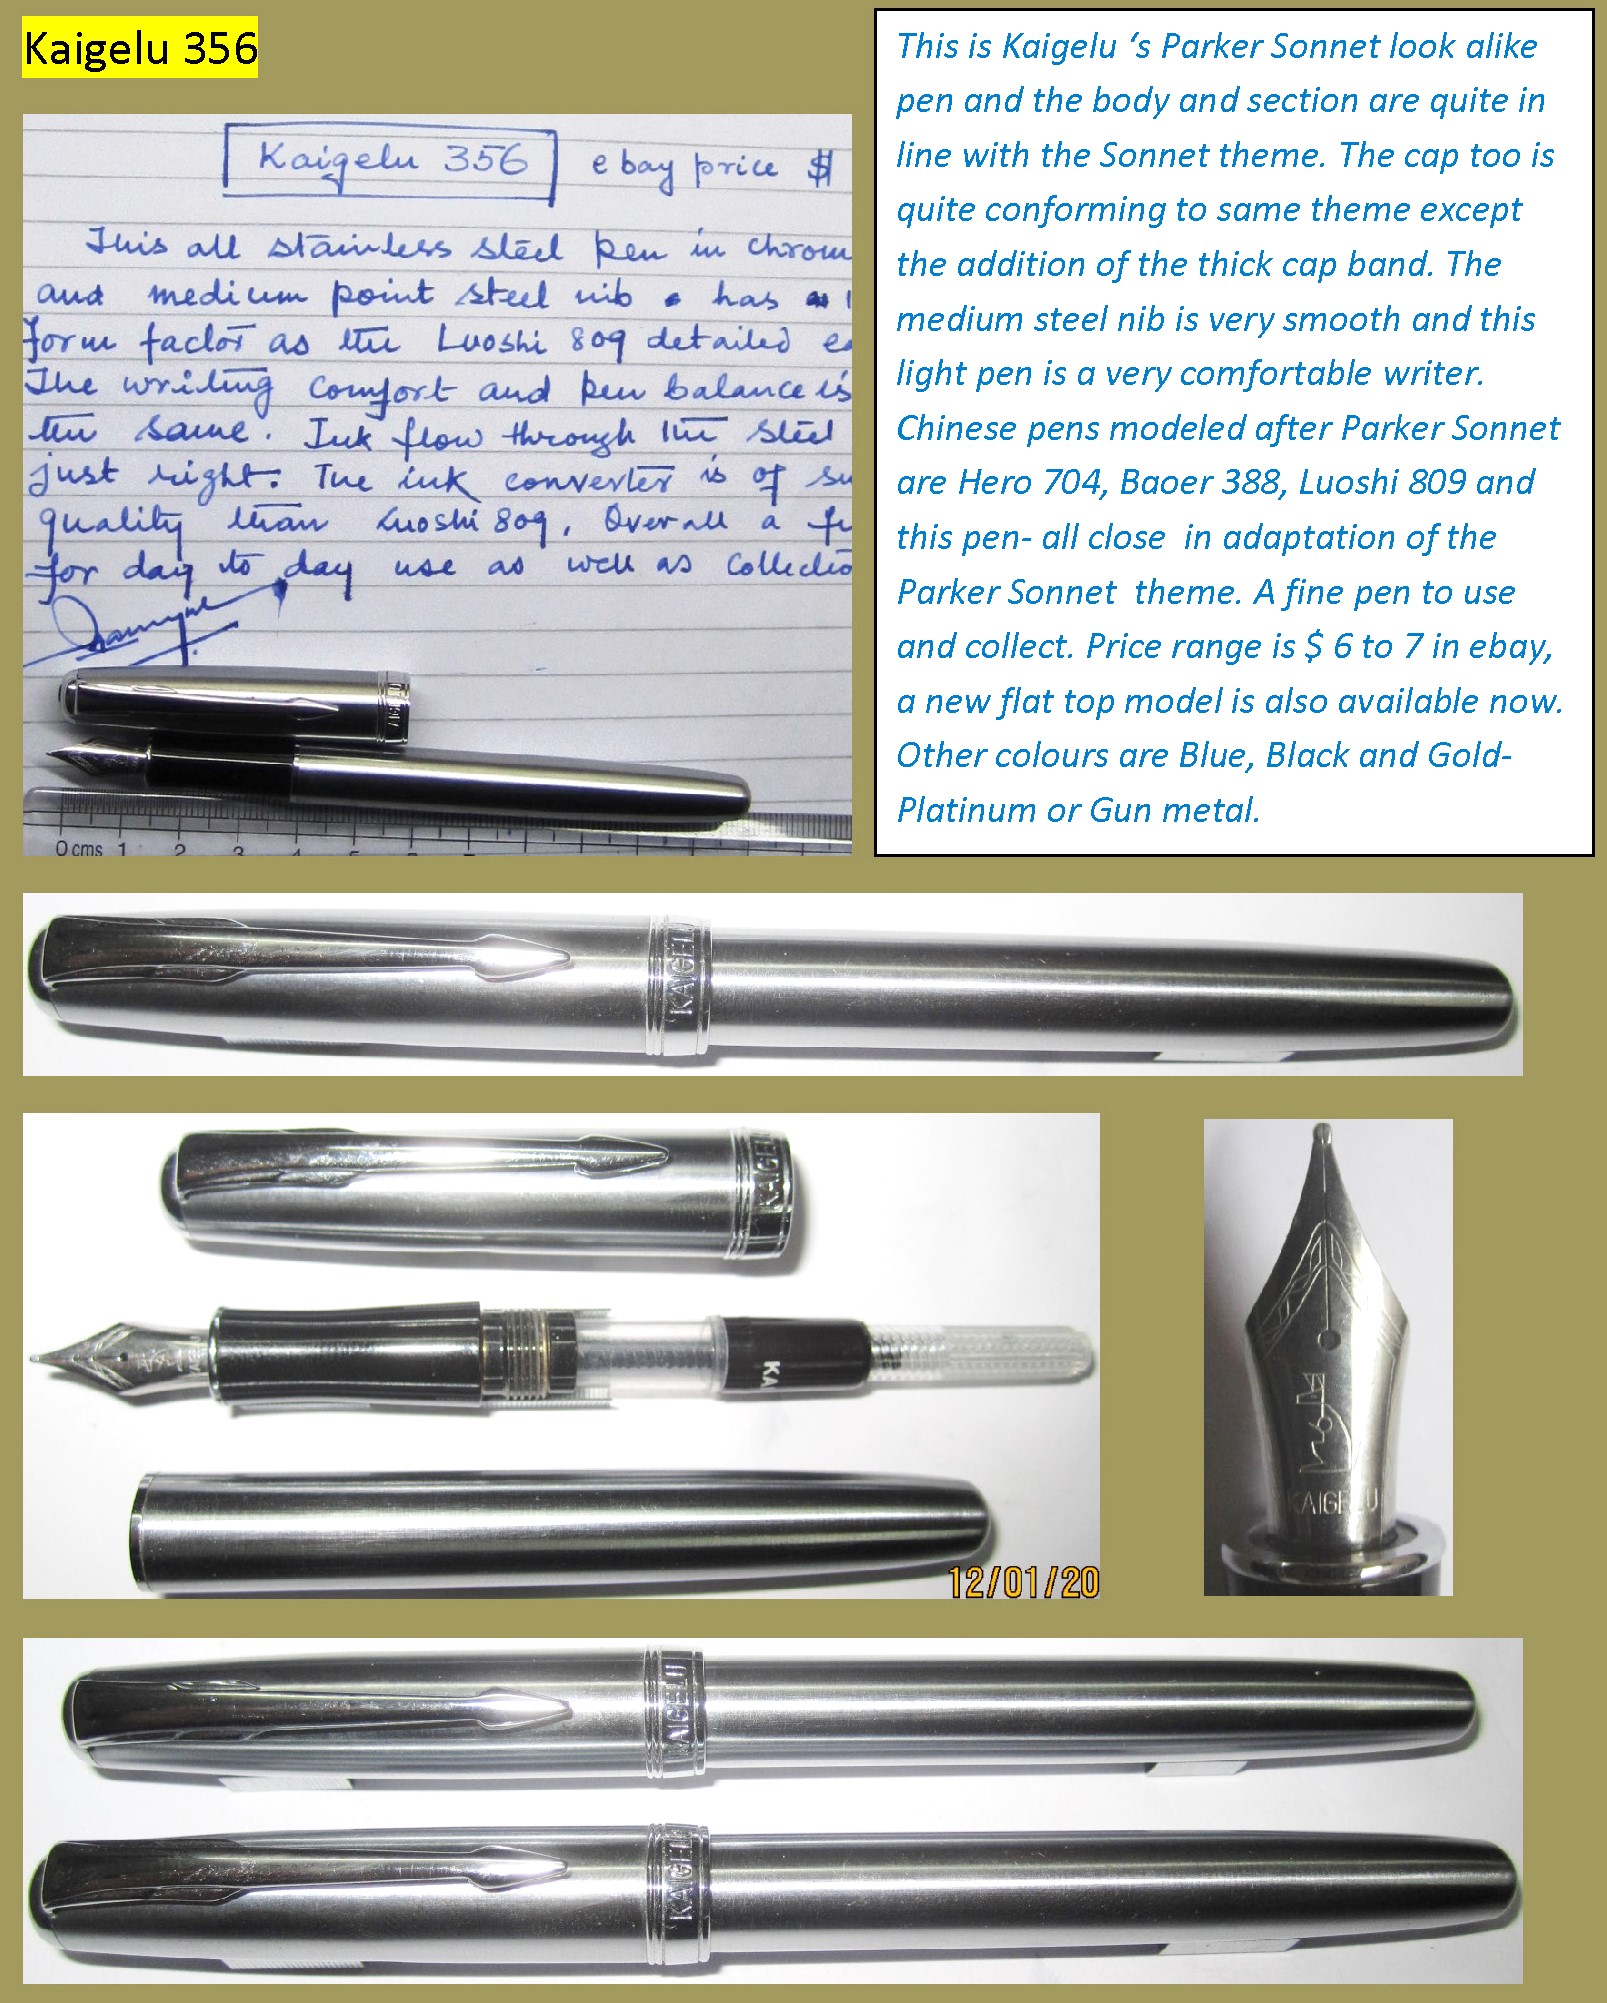 Kaigelu 356
This is Kaigelu ‘s Parker Sonnet look alike
pen and the body and section are quite in
line with the Sonnet theme. The cap too is
quite conforming to same theme except
the addition of the thick cap band. The
medium steel nib is very smooth and this
light pen is a very comfortable writer.
Chinese pens modeled after Parker Sonnet
are Hero 704, Baoer 388, Luoshi 809 and
this pen- all close  in adaptation of the
Parker Sonnet  theme. A fine pen to use
and collect. Price range is $ 6 to 7 in ebay,
a new flat top model is also available now.
Other colours are Blue, Black and Gold-
Platinum or Gun metal.
Kaigelu 356 ebay price $
This all stainless steel pen in chrom
and medium point steel nib has
form factor as the Luoshi 809 detailed
The writing comfort and pen balance is
the same. Ink flow through the steel
just right. The ink converter is of su
quality than Luoshi 809. Overall a
for day to day use as well as collectio
KAIGELU
0 cms 1 2 3 4 5 6 7
KAIGELU
KAIGELU
KA
12/01/20
KAIGELU
KAIGELU
KAIGELU